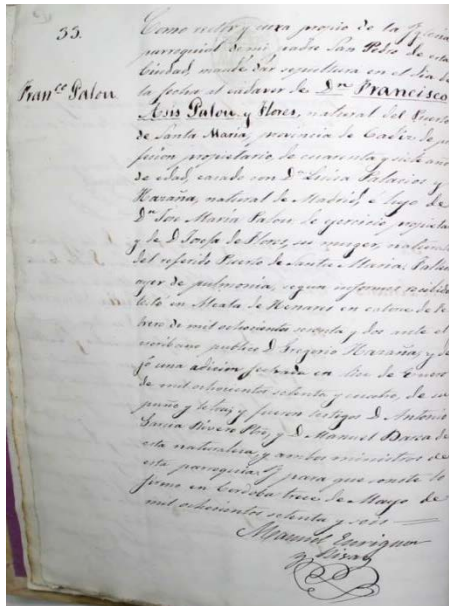 33.
Fran.co Palou
Como rector y cura propio de la Iglesia
parroquial de mi padre San Pedro de esta
Ciudad, mandé dar sepultura en el dia de
la fecha al cadaver de Dn Francisco
Asis Palou y Flores, natural del Puerto
de Santa Maria, provincia de Cadiz de pro
fesion propietario, de cuarenta y siete años
de edad, casado con Da Palacios y
natural de Madrid, é hijo de
Dn Jose Maria Palou de ejercicio, propieta
y de D Josefa de Flores, su muger, natural
del referido Puerto de Santa Maria. Falle
ayer de pulmonia, segun informes recibidos
testó en de Henares en catorce de
de mil ochocientos setenta y dos ante el
escribano publico D. Gregorio y de
jó una adicion fechada en trece de Enero
de mil ochocientos setenta y cuatro, de su
puño y letra; y fueron testigos D. Antonio
Garcia y D. Manuel de
esta naturaleza y ambos ministros de
esta parroquia. Y para que conste lo
firmo en Cordoba trece de Mayo de
mil ochocientos setenta y seis
Manuel Enriquez
y